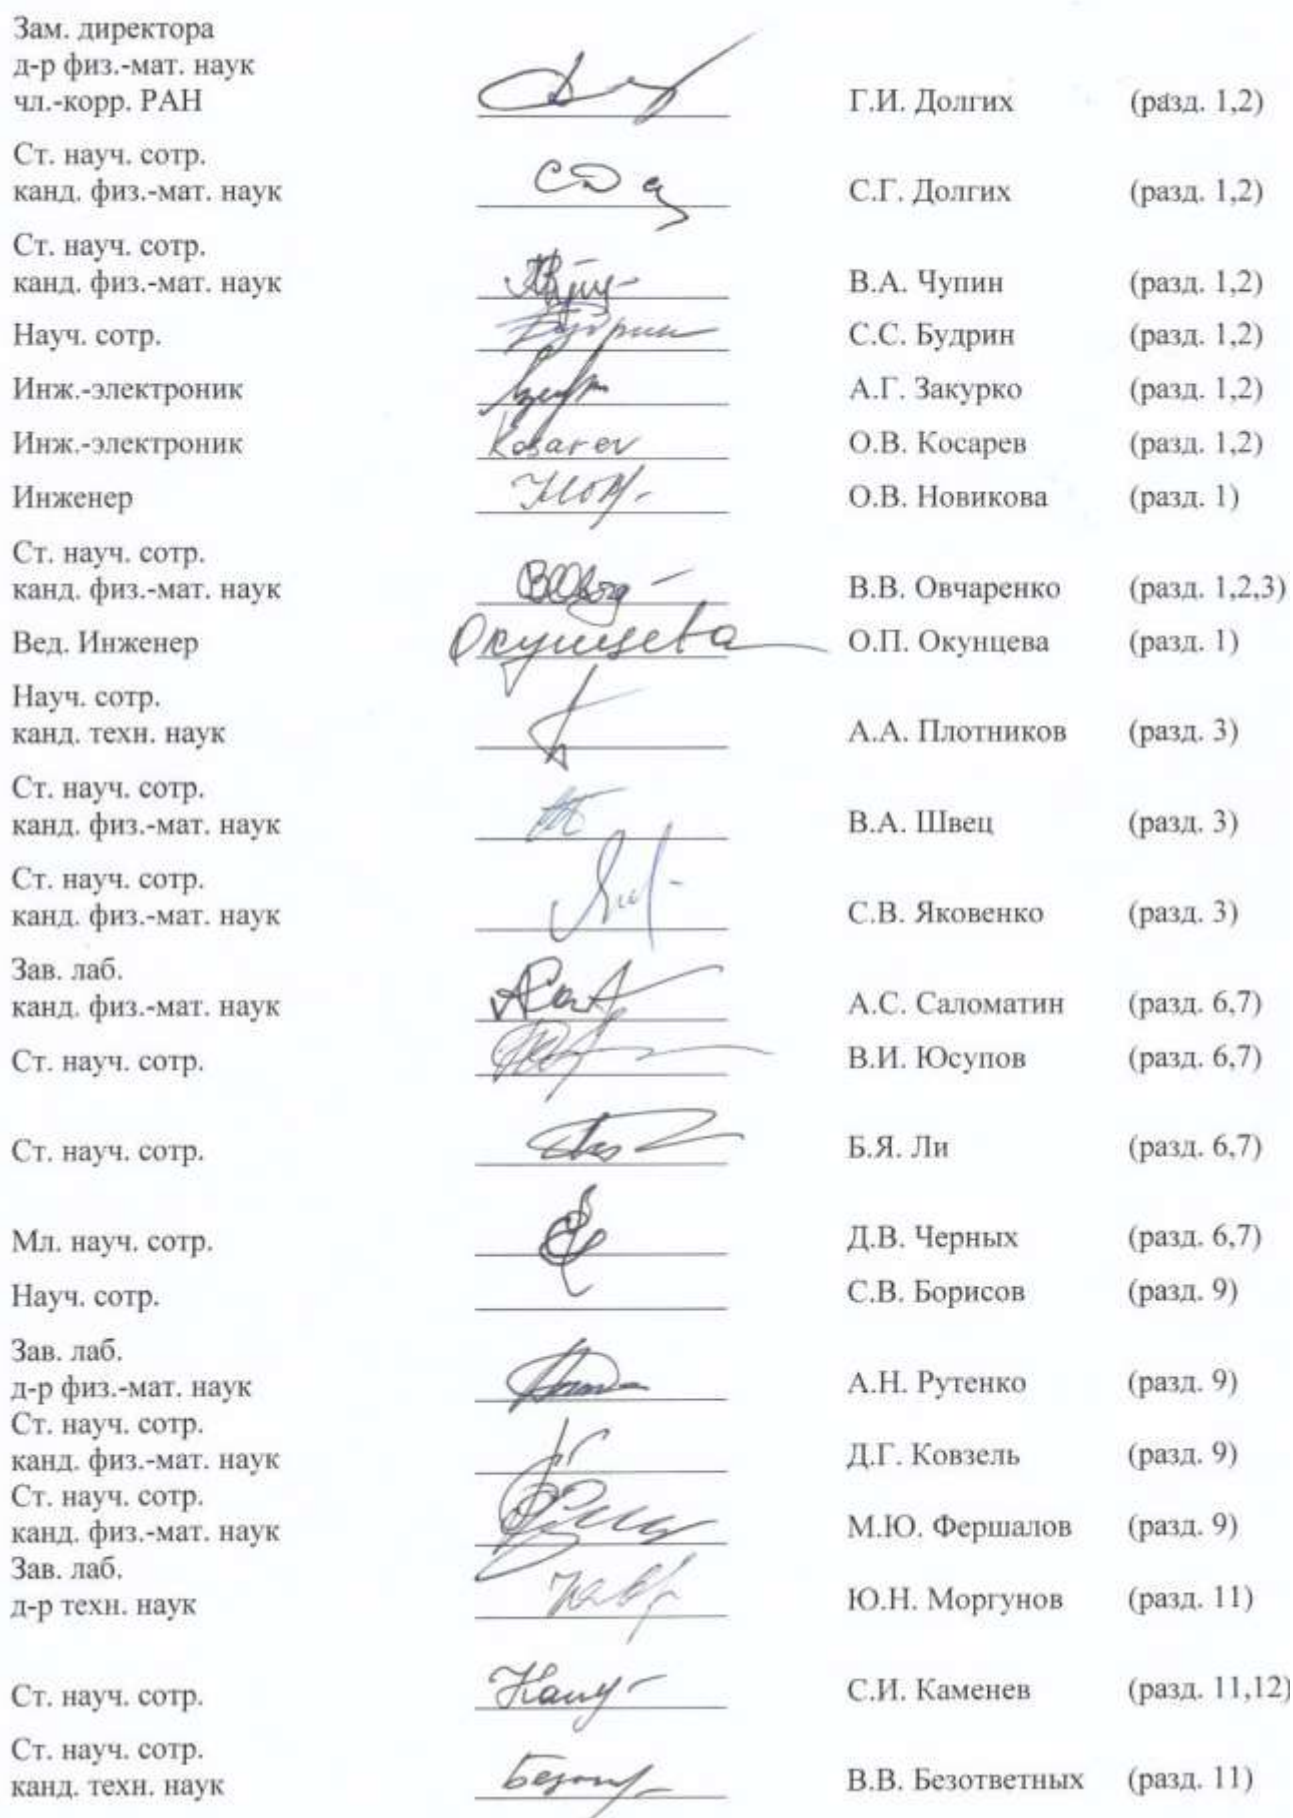 Зам. директора
д-р физ.-мат. наук
чл.-корр. РАН Г.И. Долгих (разд. 1,2)
Ст. науч. сотр.
канд. физ.-мат. наук С.Г. Долгих (разд. 1,2)
Ст. науч. сотр.
канд. физ.-мат. наук В.А. Чупин (разд. 1,2)
Науч. сотр. Будрин С.С. Будрин (разд. 1,2)
Инж.-электроник А.Г. Закурко (разд. 1,2)
Инж.-электроник Kosarev О.В. Косарев (разд. 1,2)
Инженер О.В. Новикова (разд. 1)
Ст. науч. сотр.
канд. физ.-мат. наук В.В. Овчаренко (разд. 1,2,3)
Вед. Инженер Окунцева О.П. Окунцева (разд. 1)
Науч. сотр.
канд. техн. наук А.А. Плотников (разд. 3)
Ст. науч. сотр.
канд. физ.-мат. наук В.А. Швец (разд. 3)
Ст. науч. сотр.
канд. физ.-мат. наук С.В. Яковенко (разд. 3)
Зав. лаб.
канд. физ.-мат. наук А.С. Саломатин (разд. 6,7)
Ст. науч. сотр. В.И. Юсупов (разд. 6,7)
Ст. науч. сотр. Б.Я. Ли (разд. 6,7)
Мл. науч. сотр. Д.В. Черных (разд. 6,7)
Науч. сотр. С.В. Борисов (разд. 9)
Зав. лаб.
д-р физ.-мат. наук А.Н. Рутенко (разд. 9)
Ст. науч. сотр.
канд. физ.-мат. наук Д.Г. Ковзель (разд. 9)
Ст. науч. сотр.
канд. физ.-мат. наук М.Ю. Фершалов (разд. 9)
Зав. лаб.
д-р техн. наук Ю.Н. Моргунов (разд. 11)
Ст. науч. сотр. С.И. Каменев (разд. 11,12)
Ст. науч. сотр.
канд. техн. наук В.В. Безответных (разд. 11)